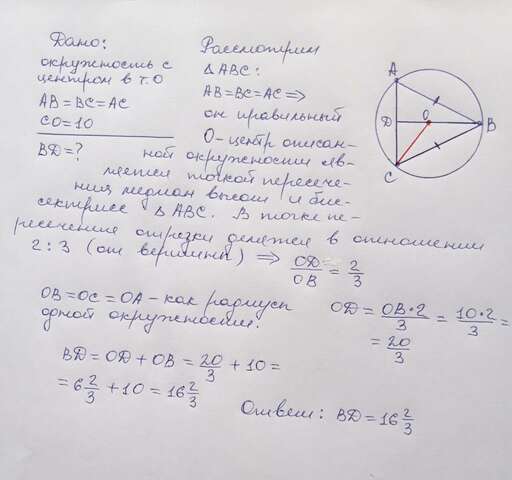 Дано:
окружность с
центром в т. О
AB = BC = AC
CO = 10
BD = ?
Рассмотрим
△ABC:
AB = BC = AC ⇒
он правильный
О - центр описан-
ной окружности яв-
ляется точкой пересече-
ния медиан высот и бис-
сектрисе △ABC. В точке пе-
ресечения отрезки делятся в отношении
2 : 3 (от вершины) ⇒ OD/OB = 2/3
A
D
O
B
C
OB = OC = OA - как радиусы
одной окружности.
OD = OB·2/3 = 10·2/3 =
= 20/3
BD = OD + OB = 20/3 + 10 =
= 6 2/3 + 10 = 16 2/3
Ответ: BD = 16 2/3